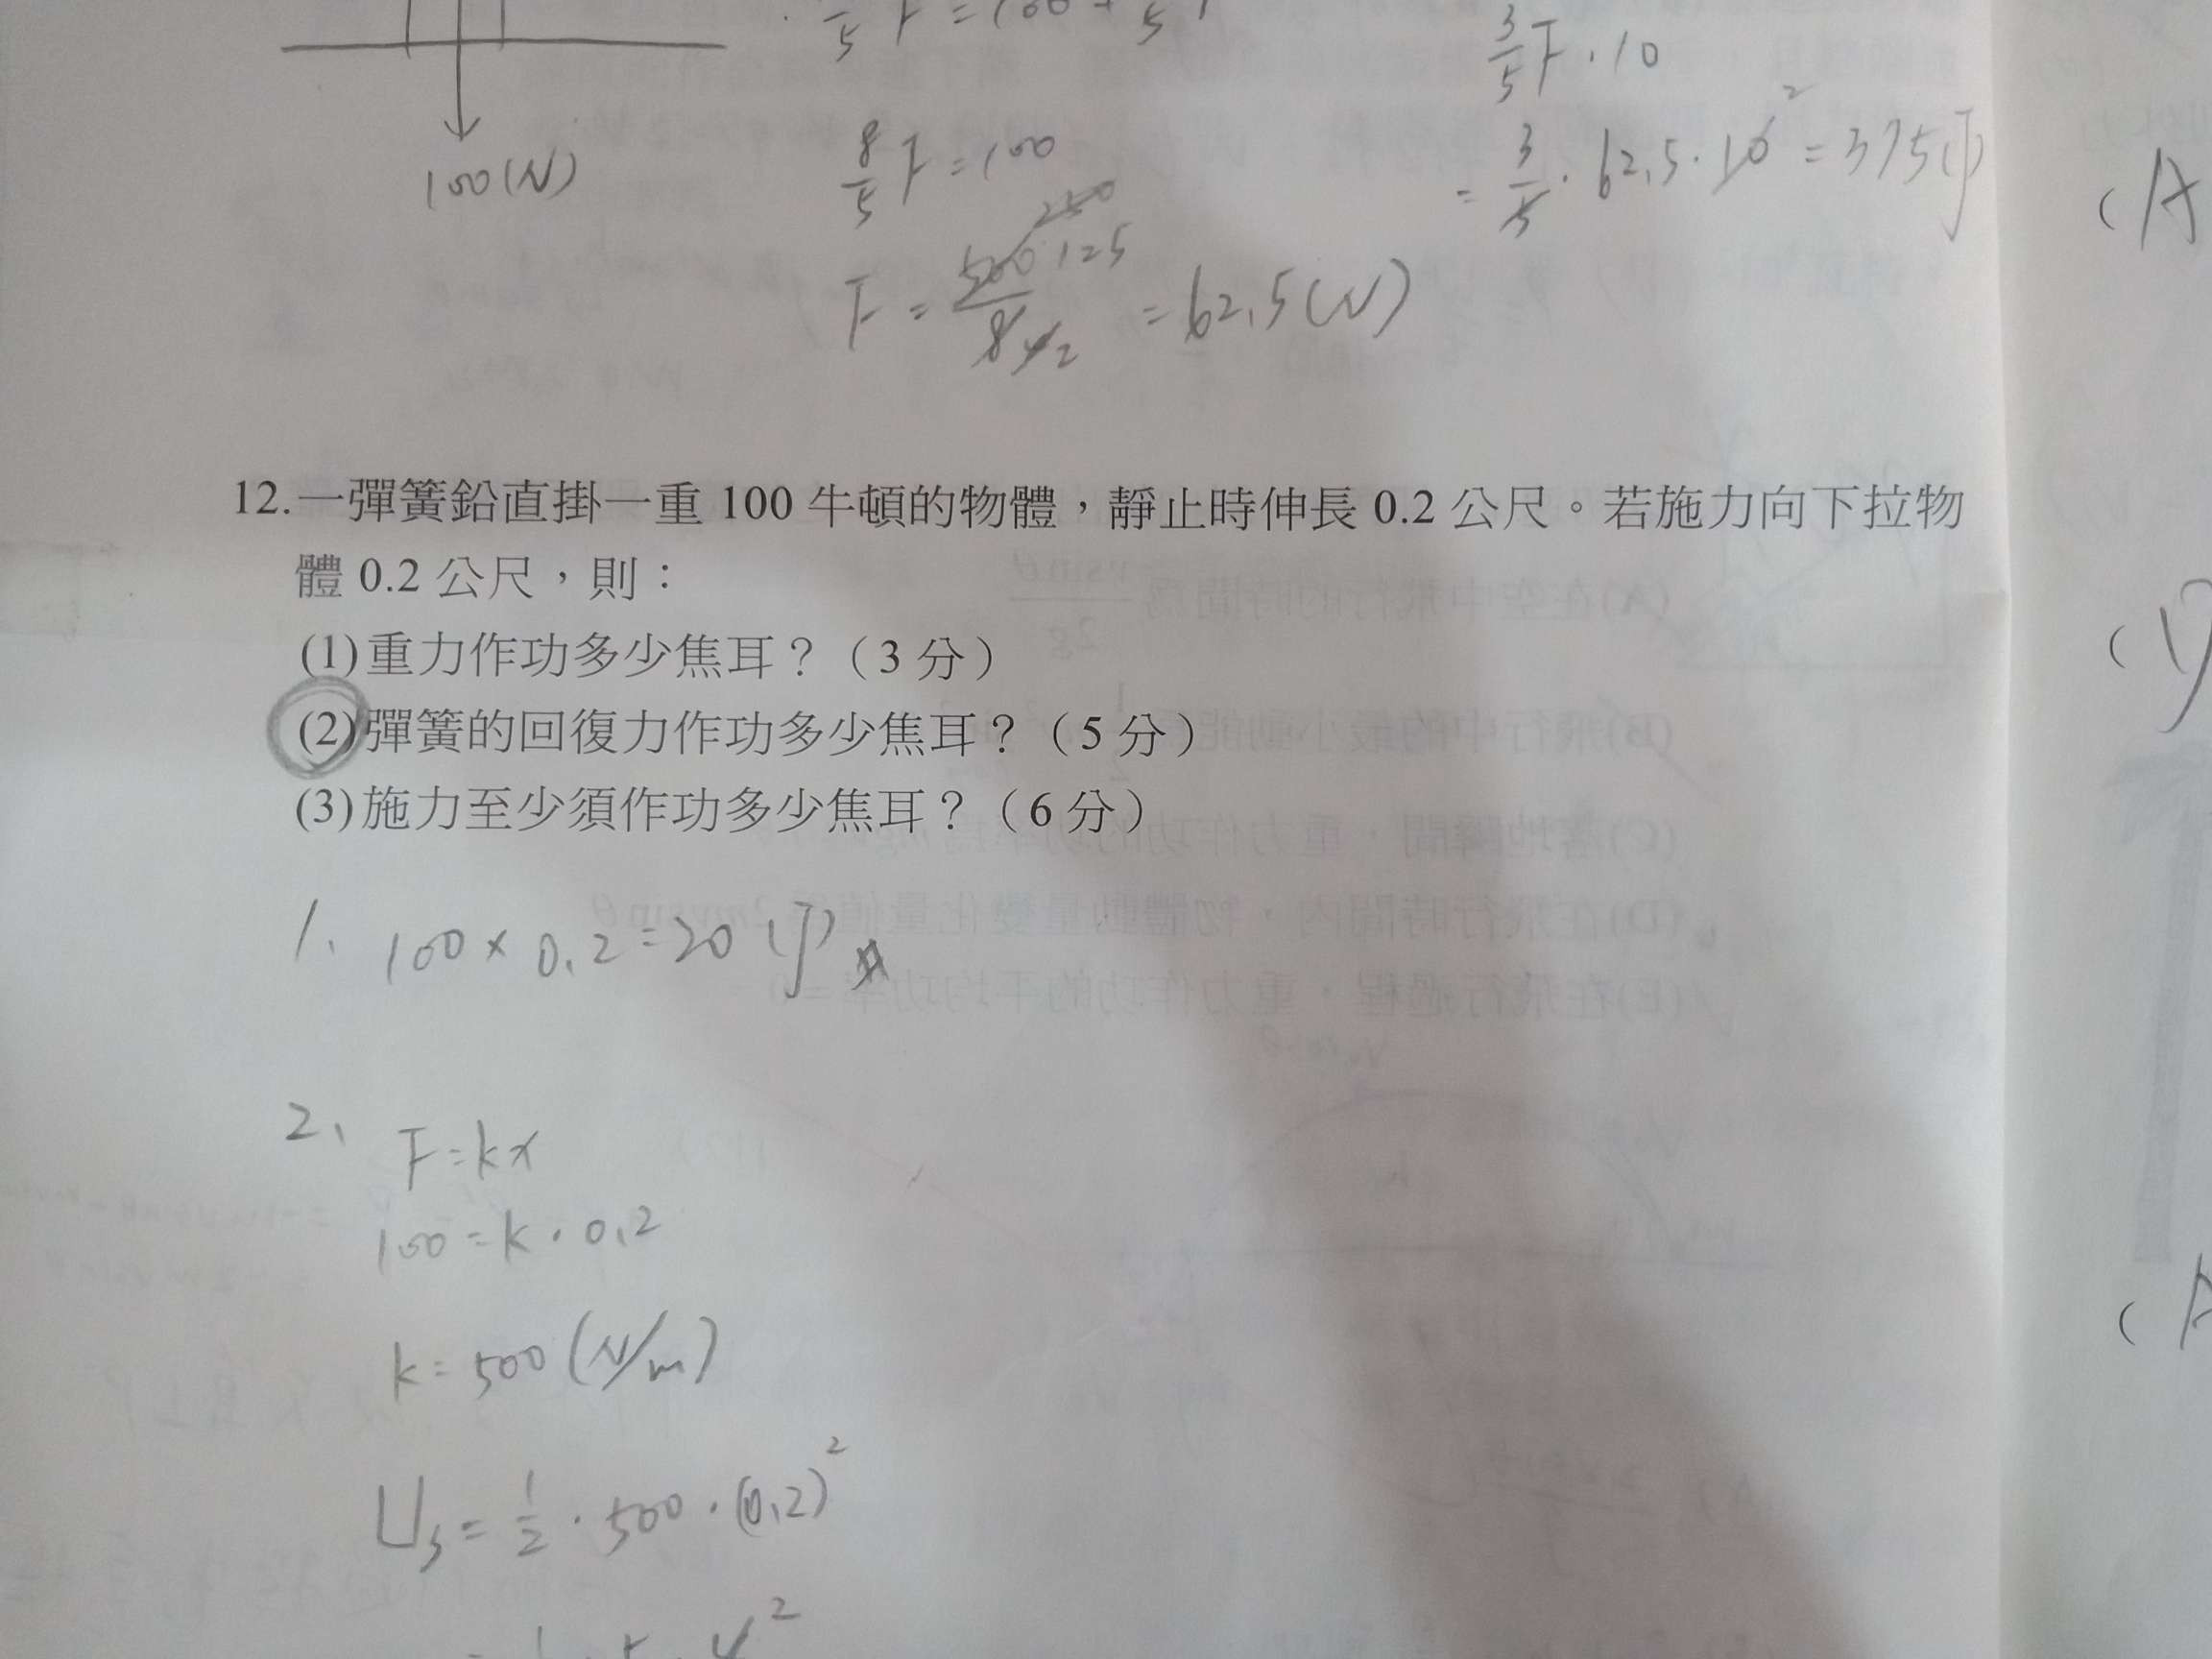 3/5 F · 10
100(N)
8/5 F = 100
= 3/5 · 62.5 · 10 2 = 375(J)
250
F = 500 125 / 8 4 2 = 62.5(N)
(A
12.一彈簧鉛直掛一重 100 牛頓的物體，靜止時伸長 0.2 公尺。若施力向下拉物
體 0.2 公尺，則：
(1)重力作功多少焦耳？（3 分）
(2)彈簧的回復力作功多少焦耳？（5 分）
(3)施力至少須作功多少焦耳？（6 分）
1、 100 × 0.2 = 20 (J)
2、 F = kx
100 = k · 0.2
k = 500 (N/m)
Us = 1/2 · 500 · (0.2)²